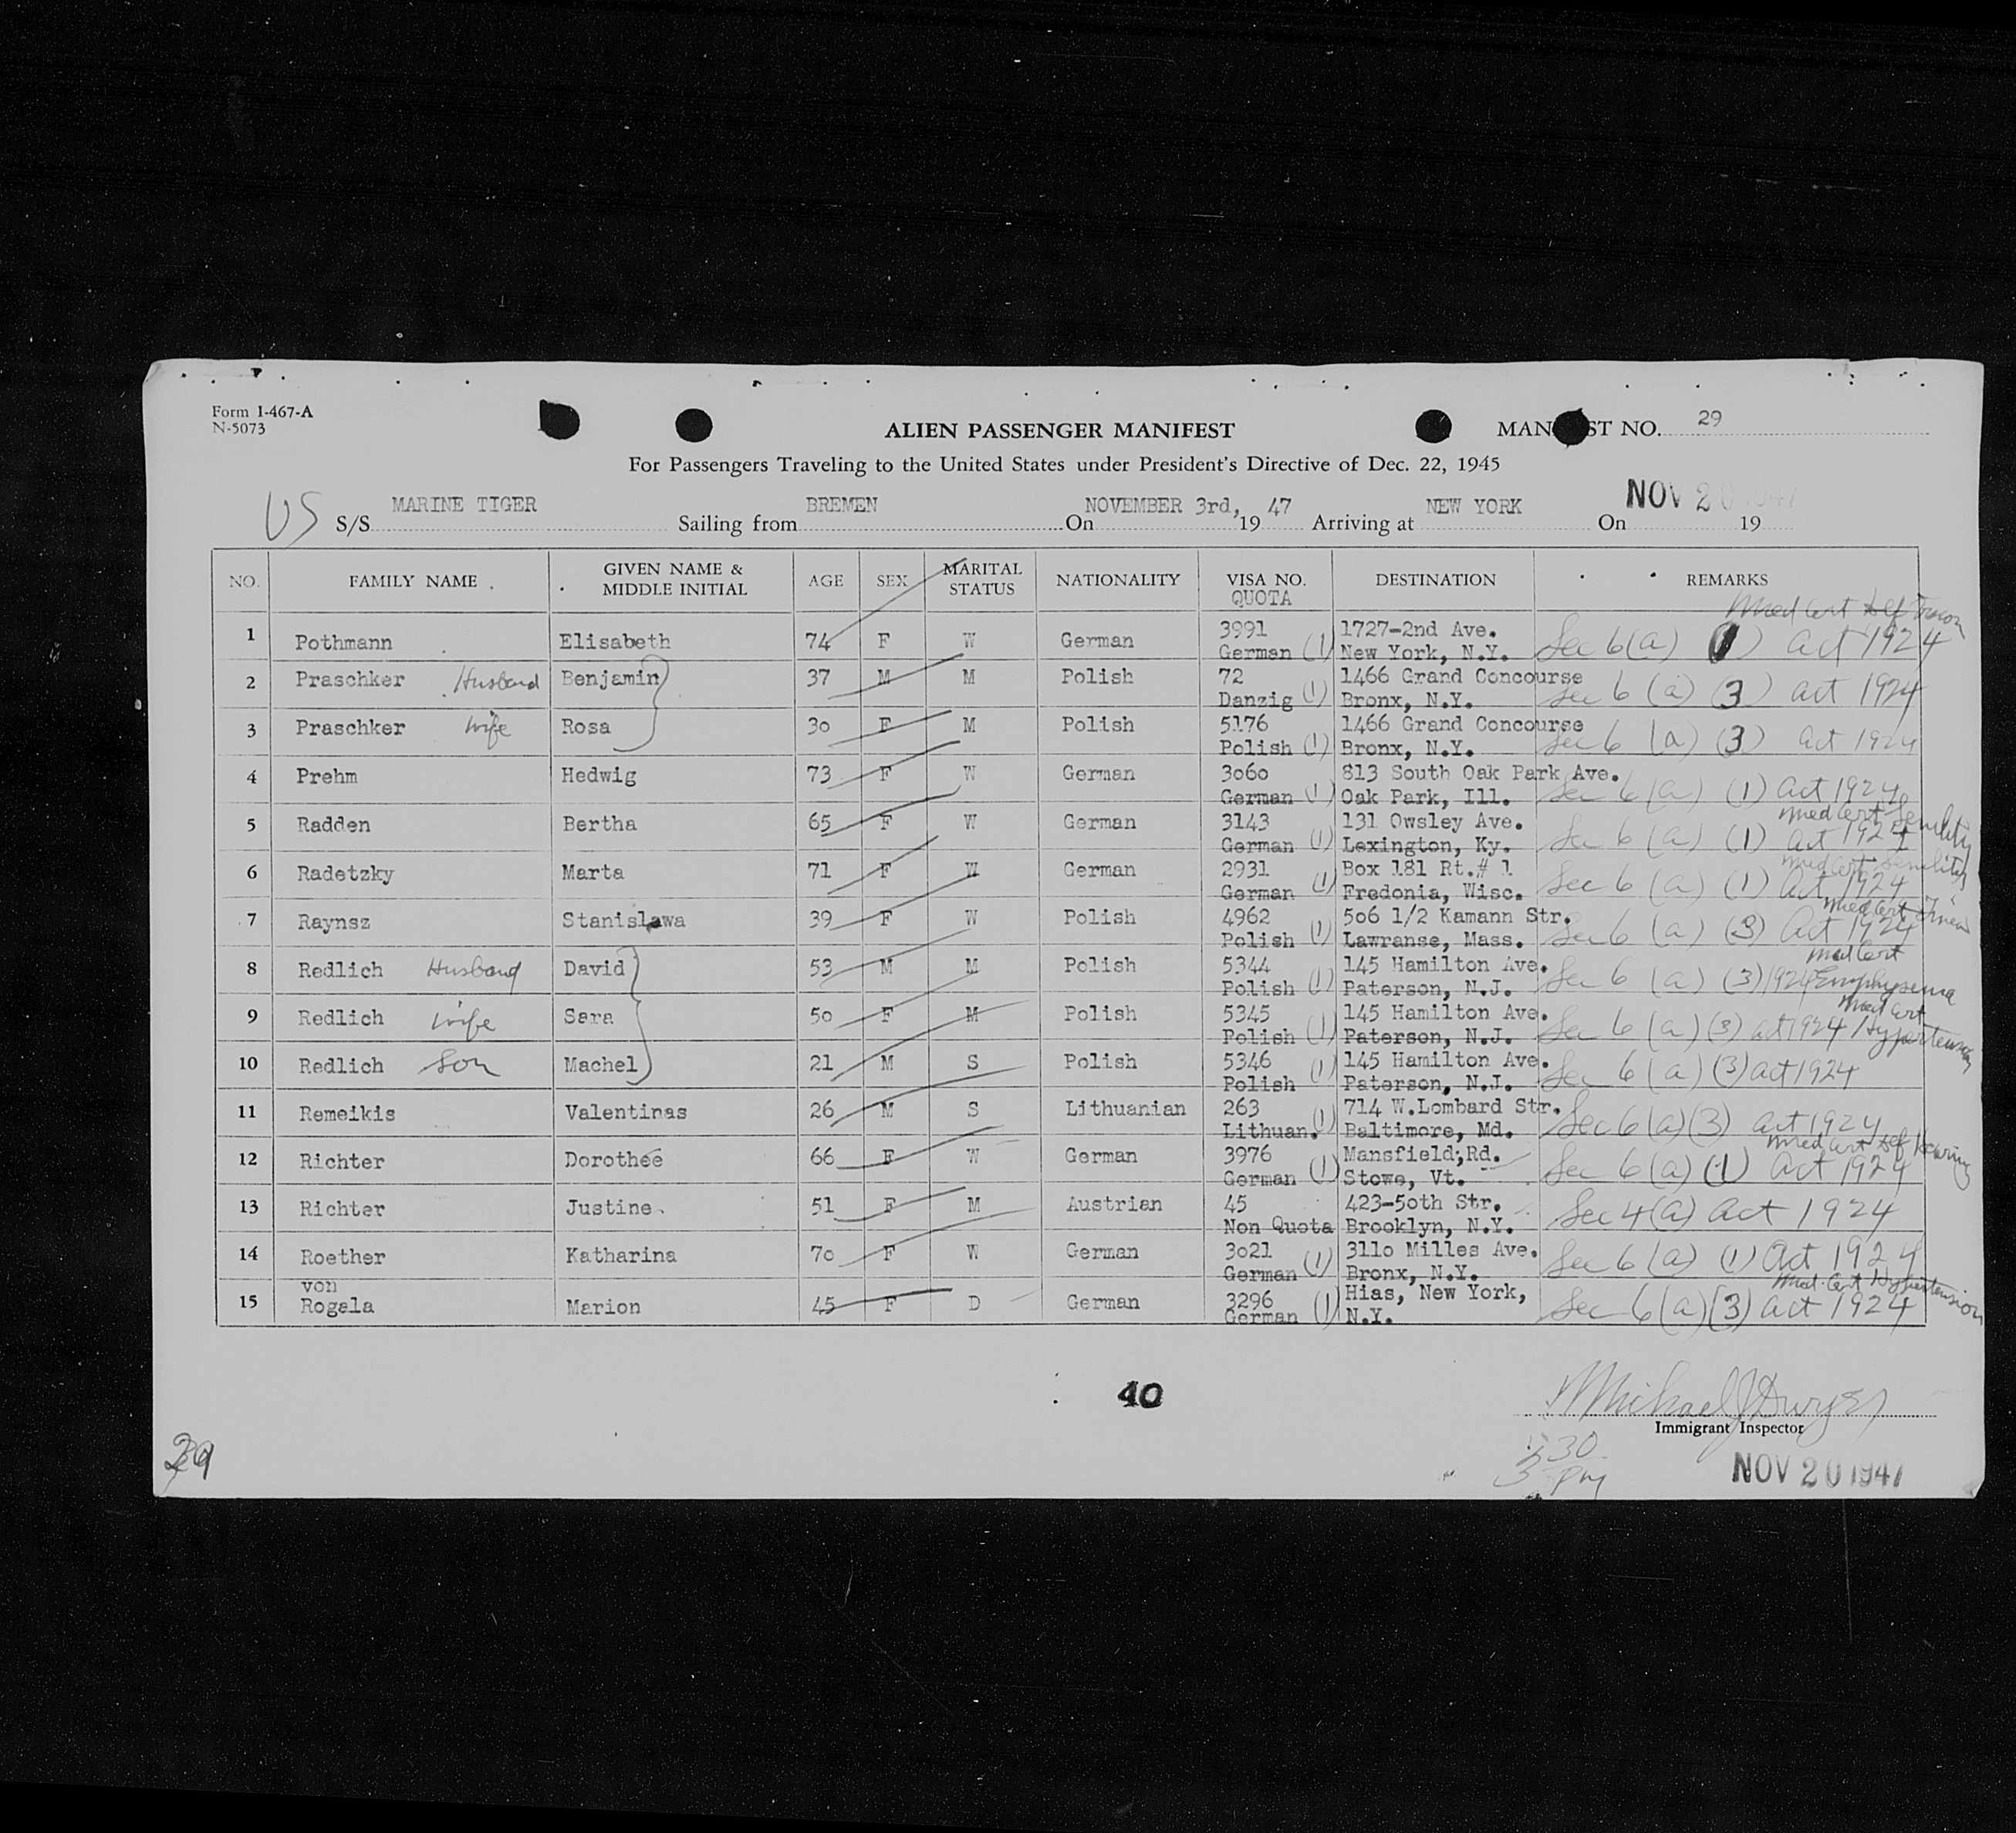 Form I-467-A
N-5073
ALIEN PASSENGER MANIFEST
MAN ST NO. 29
For Passengers Traveling to the United States under President's Directive of Dec. 22, 1945
US S/S MARINE TIGER Sailing from BREMEN On NOVEMBER 3rd, 19 47 Arriving at NEW YORK On NOV 20 1947 19
NO. FAMILY NAME GIVEN NAME & MIDDLE INITIAL AGE SEX MARITAL STATUS NATIONALITY VISA NO. QUOTA DESTINATION REMARKS
Med Cert Def Vision
1 Pothmann Elisabeth 74 F W German 3991 1727-2nd Ave. Sec 6(a) (1) Act 1924
German (1) New York, N.Y.
2 Praschker Husband Benjamin 37 M M Polish 72 1466 Grand Concourse
Danzig (1) Bronx, N.Y. Sec 6 (a) (3) Act 1924
3 Praschker Wife Rosa 3o F M Polish 5176 1466 Grand Concourse
Polish (1) Bronx, N.Y. Sec 6 (a) (3) Act 1924
4 Prehm Hedwig 73 F W German 3o6o 813 South Oak Park Ave.
German (1) Oak Park, Ill. Sec 6 (a) (1) Act 1924
Med Cert Senility
5 Radden Bertha 65 F W German 3143 131 Owsley Ave.
German (1) Lexington, Ky. Sec 6 (a) (1) Act 1924
Med Cert Senility
6 Radetzky Marta 71 F W German 2931 Box 181 Rt.# 1
German (1) Fredonia, Wisc. Sec 6 (a) (1) Act 1924
Med Cert
7 Raynsz Stanislawa 39 F W Polish 4962 5o6 1/2 Kamann Str.
Polish (1) Lawranse, Mass. Sec 6 (a) (3) Act 1924
Med Cert
8 Redlich Husband David 53 M M Polish 5344 145 Hamilton Ave.
Polish (1) Paterson, N.J. Sec 6 (a) (3) 1924 Emphysema
Med Cert
9 Redlich Wife Sara 5o F M Polish 5345 145 Hamilton Ave.
Polish (1) Paterson, N.J. Sec 6 (a) (3) Act 1924 Hypertension
10 Redlich Son Machel 21 M S Polish 5346 145 Hamilton Ave.
Polish (1) Paterson, N.J. Sec 6 (a) (3) Act 1924
11 Remeikis Valentinas 26 M S Lithuanian 263 714 W.Lombard Str.
Lithuan. (1) Baltimore, Md. Sec 6 (a) (3) Act 1924
Med Cert Def Hearing
12 Richter Dorothee 66 F W German 3976 Mansfield,Rd.
German (1) Stowe, Vt. Sec 6 (a) (1) Act 1924
13 Richter Justine 51 F M Austrian 45 423-5oth Str. Sec 4(a) Act 1924
Non Quota Brooklyn, N.Y.
14 Roether Katharina 7o F W German 3o21 311o Milles Ave. Sec 6 (a) (1) Act 1924
German (1) Bronx, N.Y.
Med. Cert Hypertension
von
15 Rogala Marion 45 F D German 3296 Hias, New York, Sec 6 (a) (3) Act 1924
German (1) N.Y.
40
Michael J Dwyer
Immigrant Inspector
29
30
3 PM
NOV 20 1947